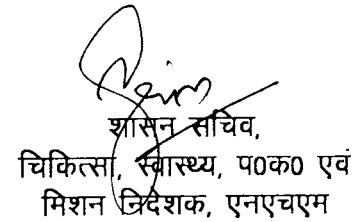 शासन सचिव,
चिकित्सा, स्वास्थ्य, प0क0 एवं
मिशन निदेशक, एनएचएम